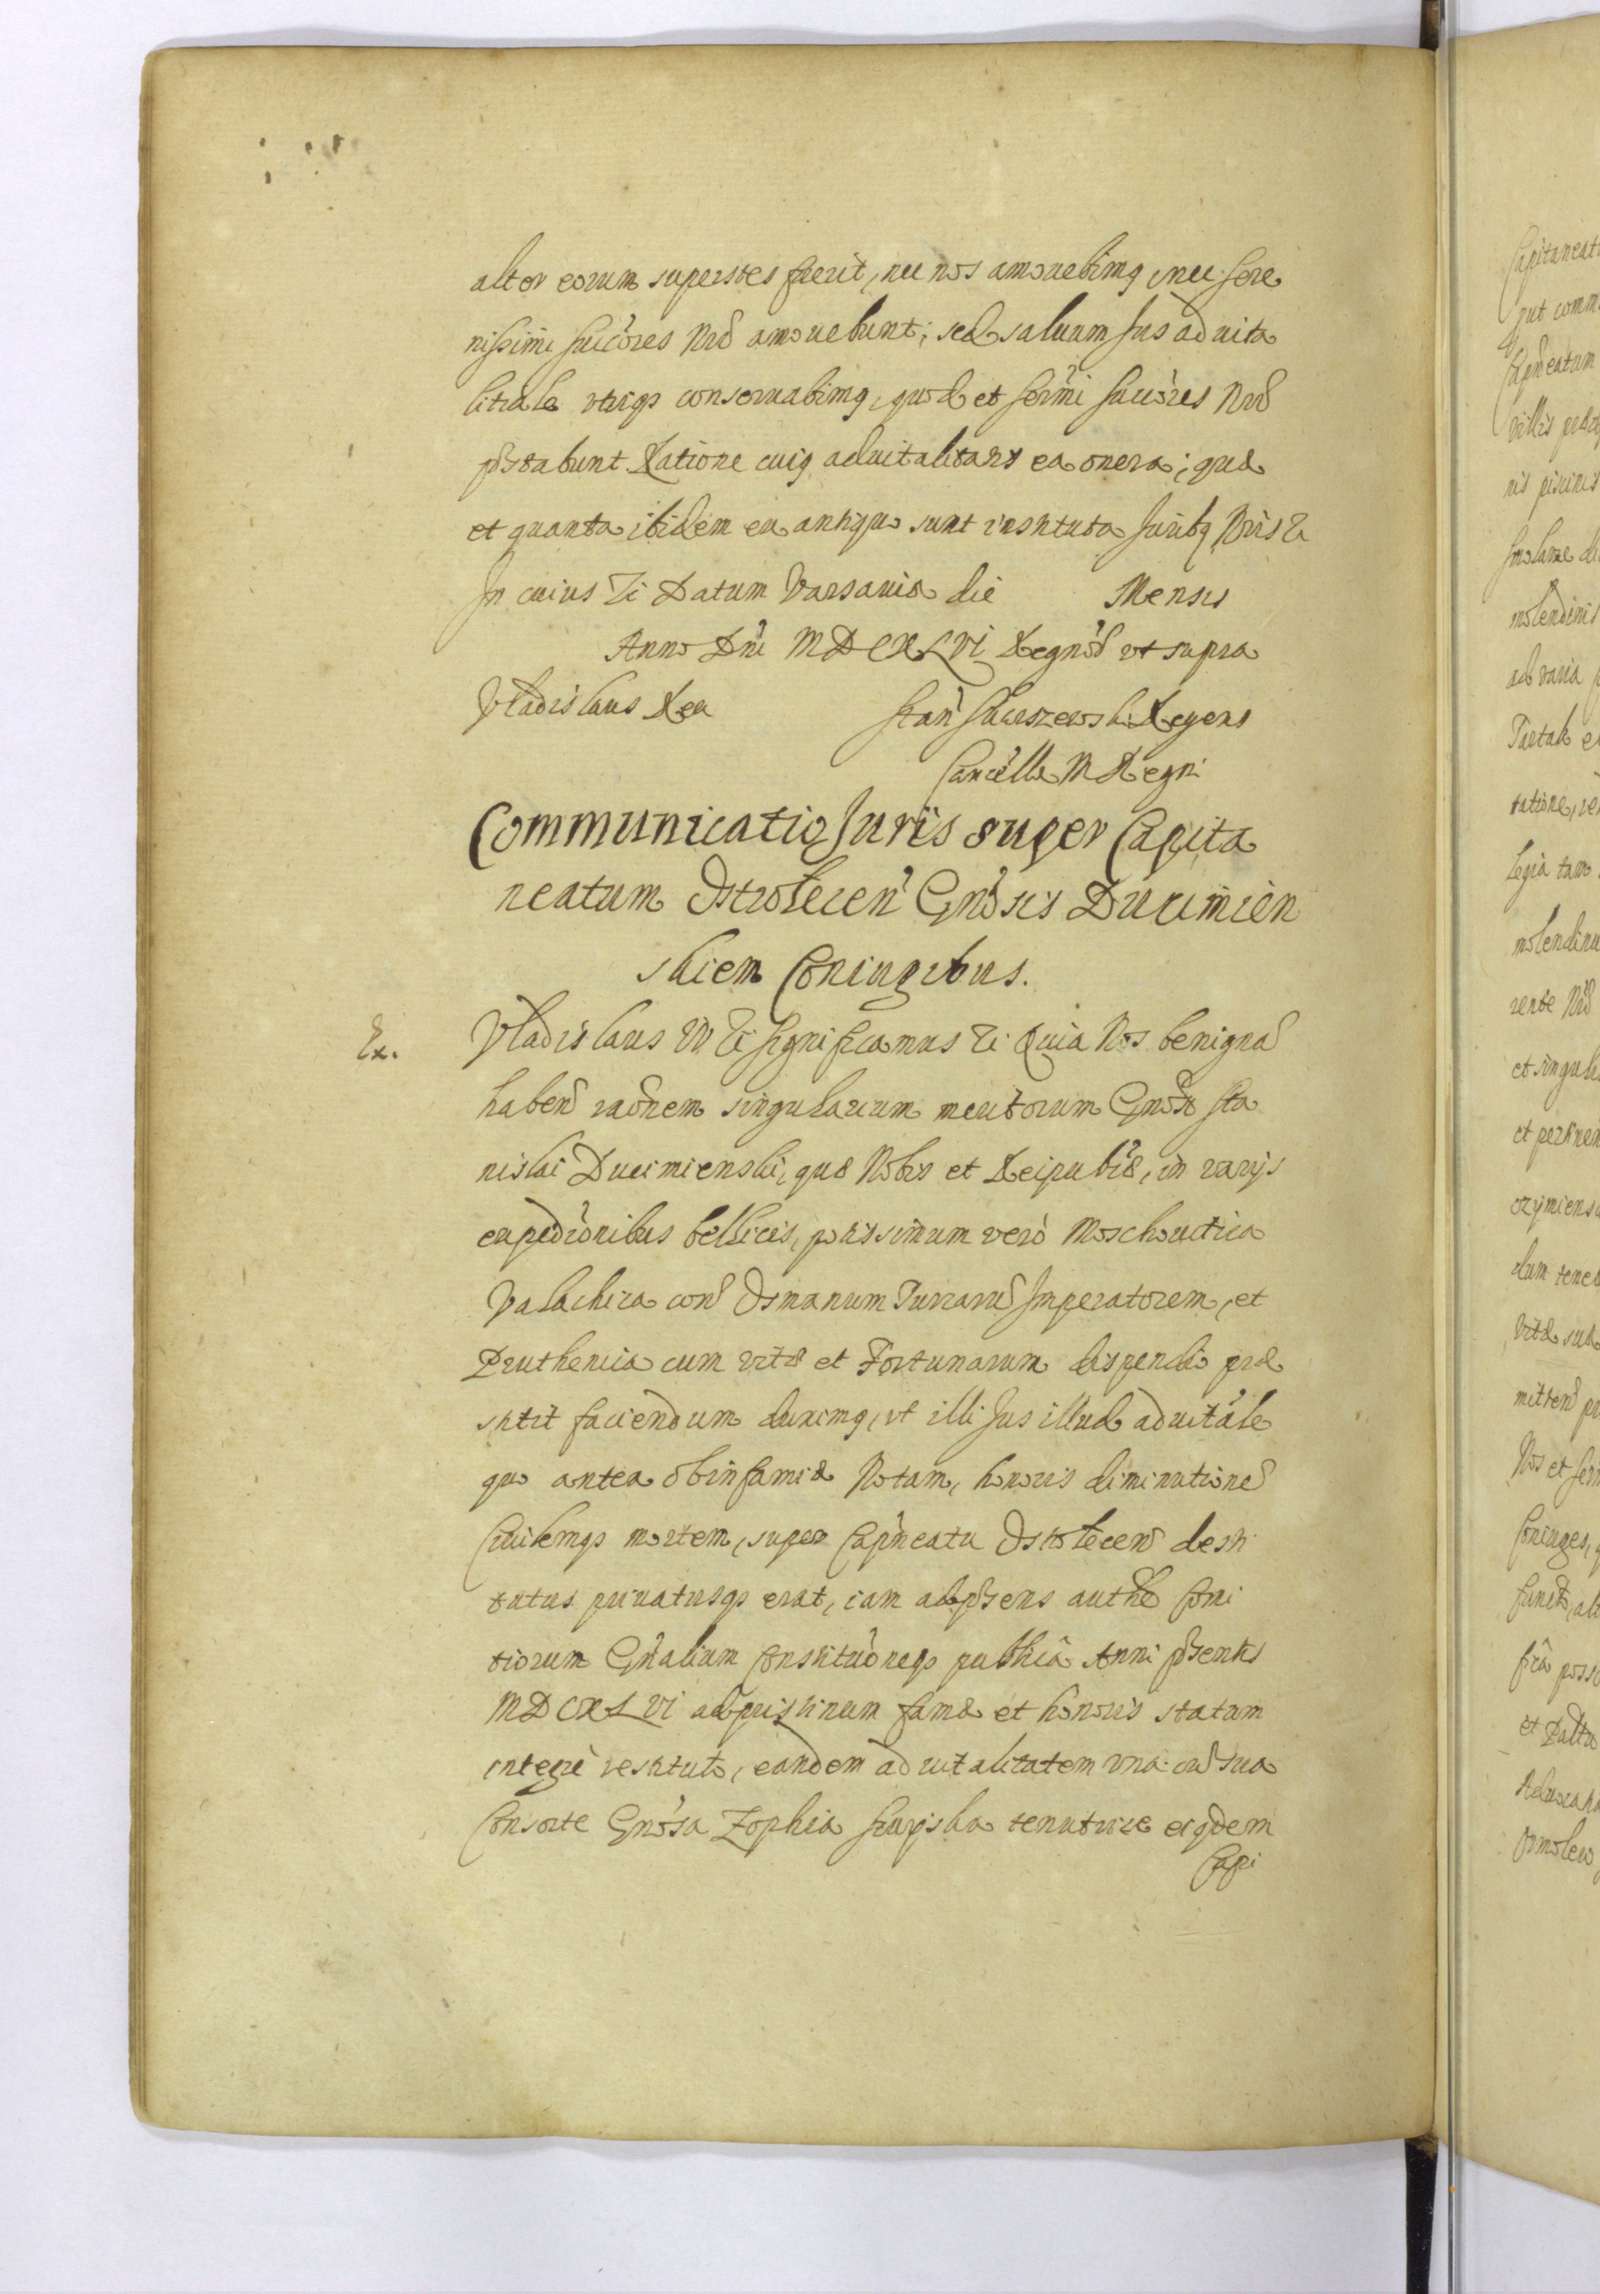 alter eorum superstes fuerit, nec nos amovebimq, nec Sere
nissimi Succ̃ores Nr̃i amovebunt; sed salvum Jus advita
litiale utriqs conservabimq, quod et Serm̃i Succ̃ores Nrĩ
pr̃stabunt Ratione cuiq advitalitatis ea onera; quæ
et quanta ibidem ex antiquo sunt instituta Juribq Nr̃is &
In cuius & Datum Varsaviæ die Mensis
Anno Dn̄i MDCXLVI Regnõr ut supra
Vladislaus Rex Stan̄ Skarszewski Regens
Cancellæ M Regni
Communicatio Juris super Capita
neatum Ostrolecen̄ Gnõsis Ducimien
skiem Coniugibus.
Ex. Vladislaus IV & Significamus & Quia Nos benignã
haben̄ raõnem singularium meritorum Gnõsi Sta
nislai Ducimienski, quæ Nobis et Reipubl̃æ, in varijs
expedic̃onibus bellicis, potissimum verò Moschovitica
Valachica con̄ Osmanum Turcarũ Imperatorem, et
Pruthenica cum vitæ et Fortunarum dispendio præ
stitit faciendum duximq, ut illi Jus illud advitãle
quo antea ob infamiæ Notam, honoris diminutionẽ
Civilemqs mortem, super Cap̃neatu Ostrolecen̄ desti
tutus privatusqs erat, iam ad pr̃sens auth̃e Comi
tiorum Gñalium Constituõneqs publicâ Anni pr̃sentis
MDCXLVI ad pristinum famæ et honoris statum
integrè restituto, eandem advitalitatem una cũ sua
Consorte Gnõsa Zophia tenutrice eiqdem
Capi